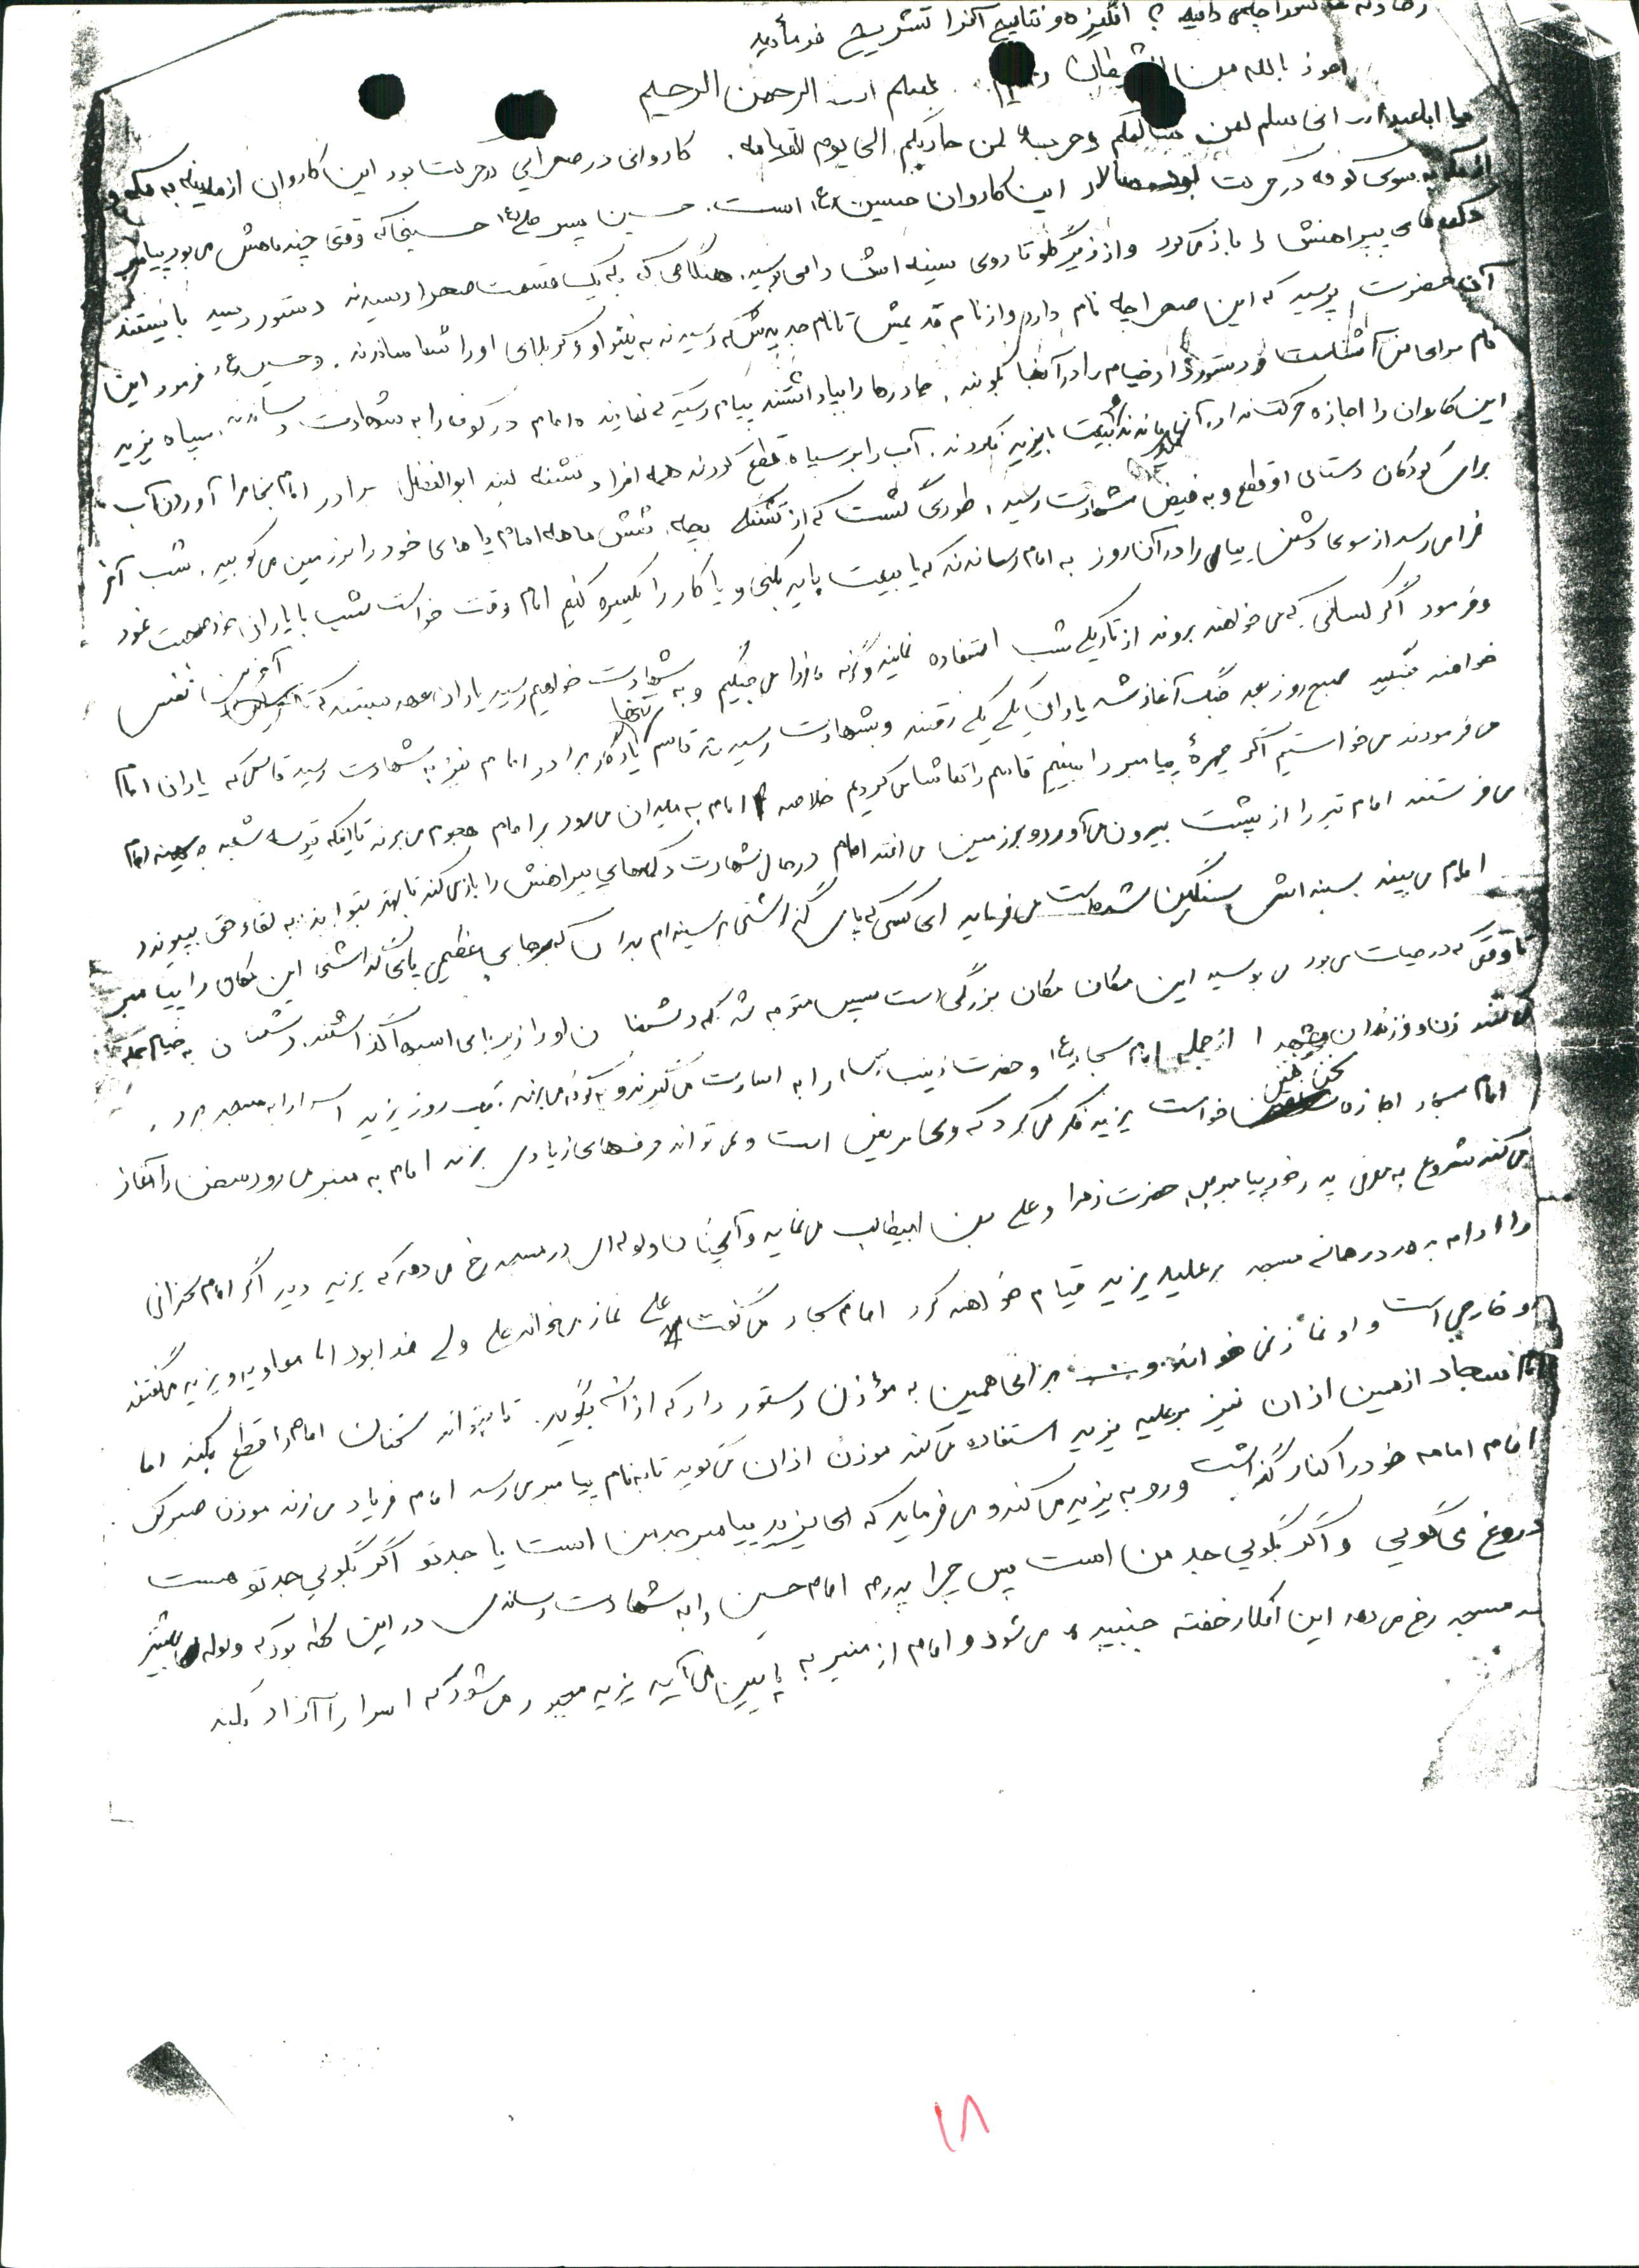 انگیزه و نتایج آنرا تشریح فرمائید
اعوذ بالله من الشیطان بسم الله الرحمن الرحیم
یا اباعبدالله انی سلم لمن سالمکم و حرب لمن حاربکم الی یوم القیامه. کاروانی در صحرایی در حرکت بود این کاروان از مدینه به مکه و
از مکه به سوی کوفه در حرکت بود سالار این کاروان حسین (ع) است. حسین پسر علی (ع) حسینی که وقتی چند ماهش می بود پیامبر
دکمه های پیراهنش را باز می کرد و از زیر گلو تا روی سینه اش را می بوسید. هنگامی که به یک قسمت صحرا رسیدند دستور رسید بایستند
آن حضرت پرسید که این صحرا چه نام دارد و از نام قدیمش تا نام جدیدش که رسیدند به نینوا و کربلای او را شناساندند. و حسین (ع) فرمود این
نام برای من آشناست و دستور داد خیام را در آنجا بکوبند. چادرها را بپا داشتند پیام رسید امام در کوفه را به شهادت رساندند. سپاه یزید
این کاروان را اجازه حرکت نداد. آنها ماندند و بیعت با یزید نکردند. آب را بر سپاه قطع کردند همه افراد تشنه لبند ابوالفضل برادر امام بخاطر آوردن آب
برای کودکان دستان او قطع و به فیض شهادت رسید. طوری گشت که از تشنگی بچه شش ماهه امام پاهای خود را بر زمین می کوبید. شب آخر
فرا می رسد از سوی دشمن پیامی را در آن روز به امام رساندند که یا بیعت باید بکنی و یا کار را یکسره کنیم امام وقت خواست شب با یاران خود صحبت نمود
و فرمود اگر کسانی که می خواهند بروند از تاریکی شب استفاده نمایند وگرنه ما فردا می جنگیم و به شهادت خواهیم رسید یاران عهد بستند که تا آخرین نفس
خواهند جنگید صبح روز بعد جنگ آغاز شد یاران یکی یکی رفتند و بشهادت رسیدند قاسم تنها یادگار برادر امام نیز به شهادت رسید قاسمی که یاران امام
می فرمودند می خواستیم اگر چهره پیامبر را ببینیم قاسم را تماشا می کردیم خلاصه امام به میدان می رود بر امام هجوم می برند تا اینکه تیر سه شعبه به سینه امام
می فرستند امام تیر را از پشت بیرون می آورد و بر زمین می افتد امام در حال شهادت دکمه های پیراهنش را باز می کند تا بهتر بتواند به لقاء حق بپیوندد
امام می بیند سینه اش سنگین شده است می فرماید ای کسی که پای گذاشتی بر سینه ام بدان که بر جای عظیمی پای گذاشتی این مکان را پیامبر
تا وقتی که در حیات می بود می بوسید این مکان مکان بزرگی است سپس متوجه شد که دشمنان او را زیر پای اسبها گذاشتند. دشمنان به خیام حمله
می کنند زنان و فرزندان از جمله امام سجاد (ع) و حضرت زینب (س) را به اسارت می گیرند و به کوفه می برند. یک روز یزید اسرا را به مسجد برد.
امام سجاد اجازه سخن خواست یزید فکر می کرد که وی مریض است و نمی تواند حرفهای زیادی بزند امام به منبر می رود سخن را آغاز
می کند شروع به معرفی پدر خود پیامبر حضرت زهرا و علی بن ابیطالب می نماید و آنچنان ولوله ای در مسجد رخ می دهد که یزید دید اگر امام سخنرانی
را ادامه بدهد در همانجا مسجد بر علیه یزید قیام خواهند کرد امام سجاد می گفت علی نماز می خواند علی ولی خدا بود اما معاویه و یزید می گفتند
او خارجی است و او نماز نمی خواند برای همین به مؤذن دستور داد که اذان بگوید. تا بتواند سخنان امام را قطع بکند اما
امام سجاد از همین اذان نیز بر علیه یزید استفاده می کند موذن اذان می گوید تا به نام پیامبر می رسد امام فریاد می زند موذن صبر کن
امام امامه خود را کنار گذاشت و رو به یزید می کند و می فرماید که ای یزید پیامبر جد من است یا جد تو اگر بگویی جد تو هست
دروغ می گویی و اگر بگویی جد من است پس چرا پدرم امام حسین را به شهادت رساندی در این لحظه بود که ولوله بیشتر
در مسجد رخ می دهد این افکار خفته جنبیده می شود و امام از منبر به پایین می آید یزید مجبور می شود که اسرا را آزاد بکند
۱۸